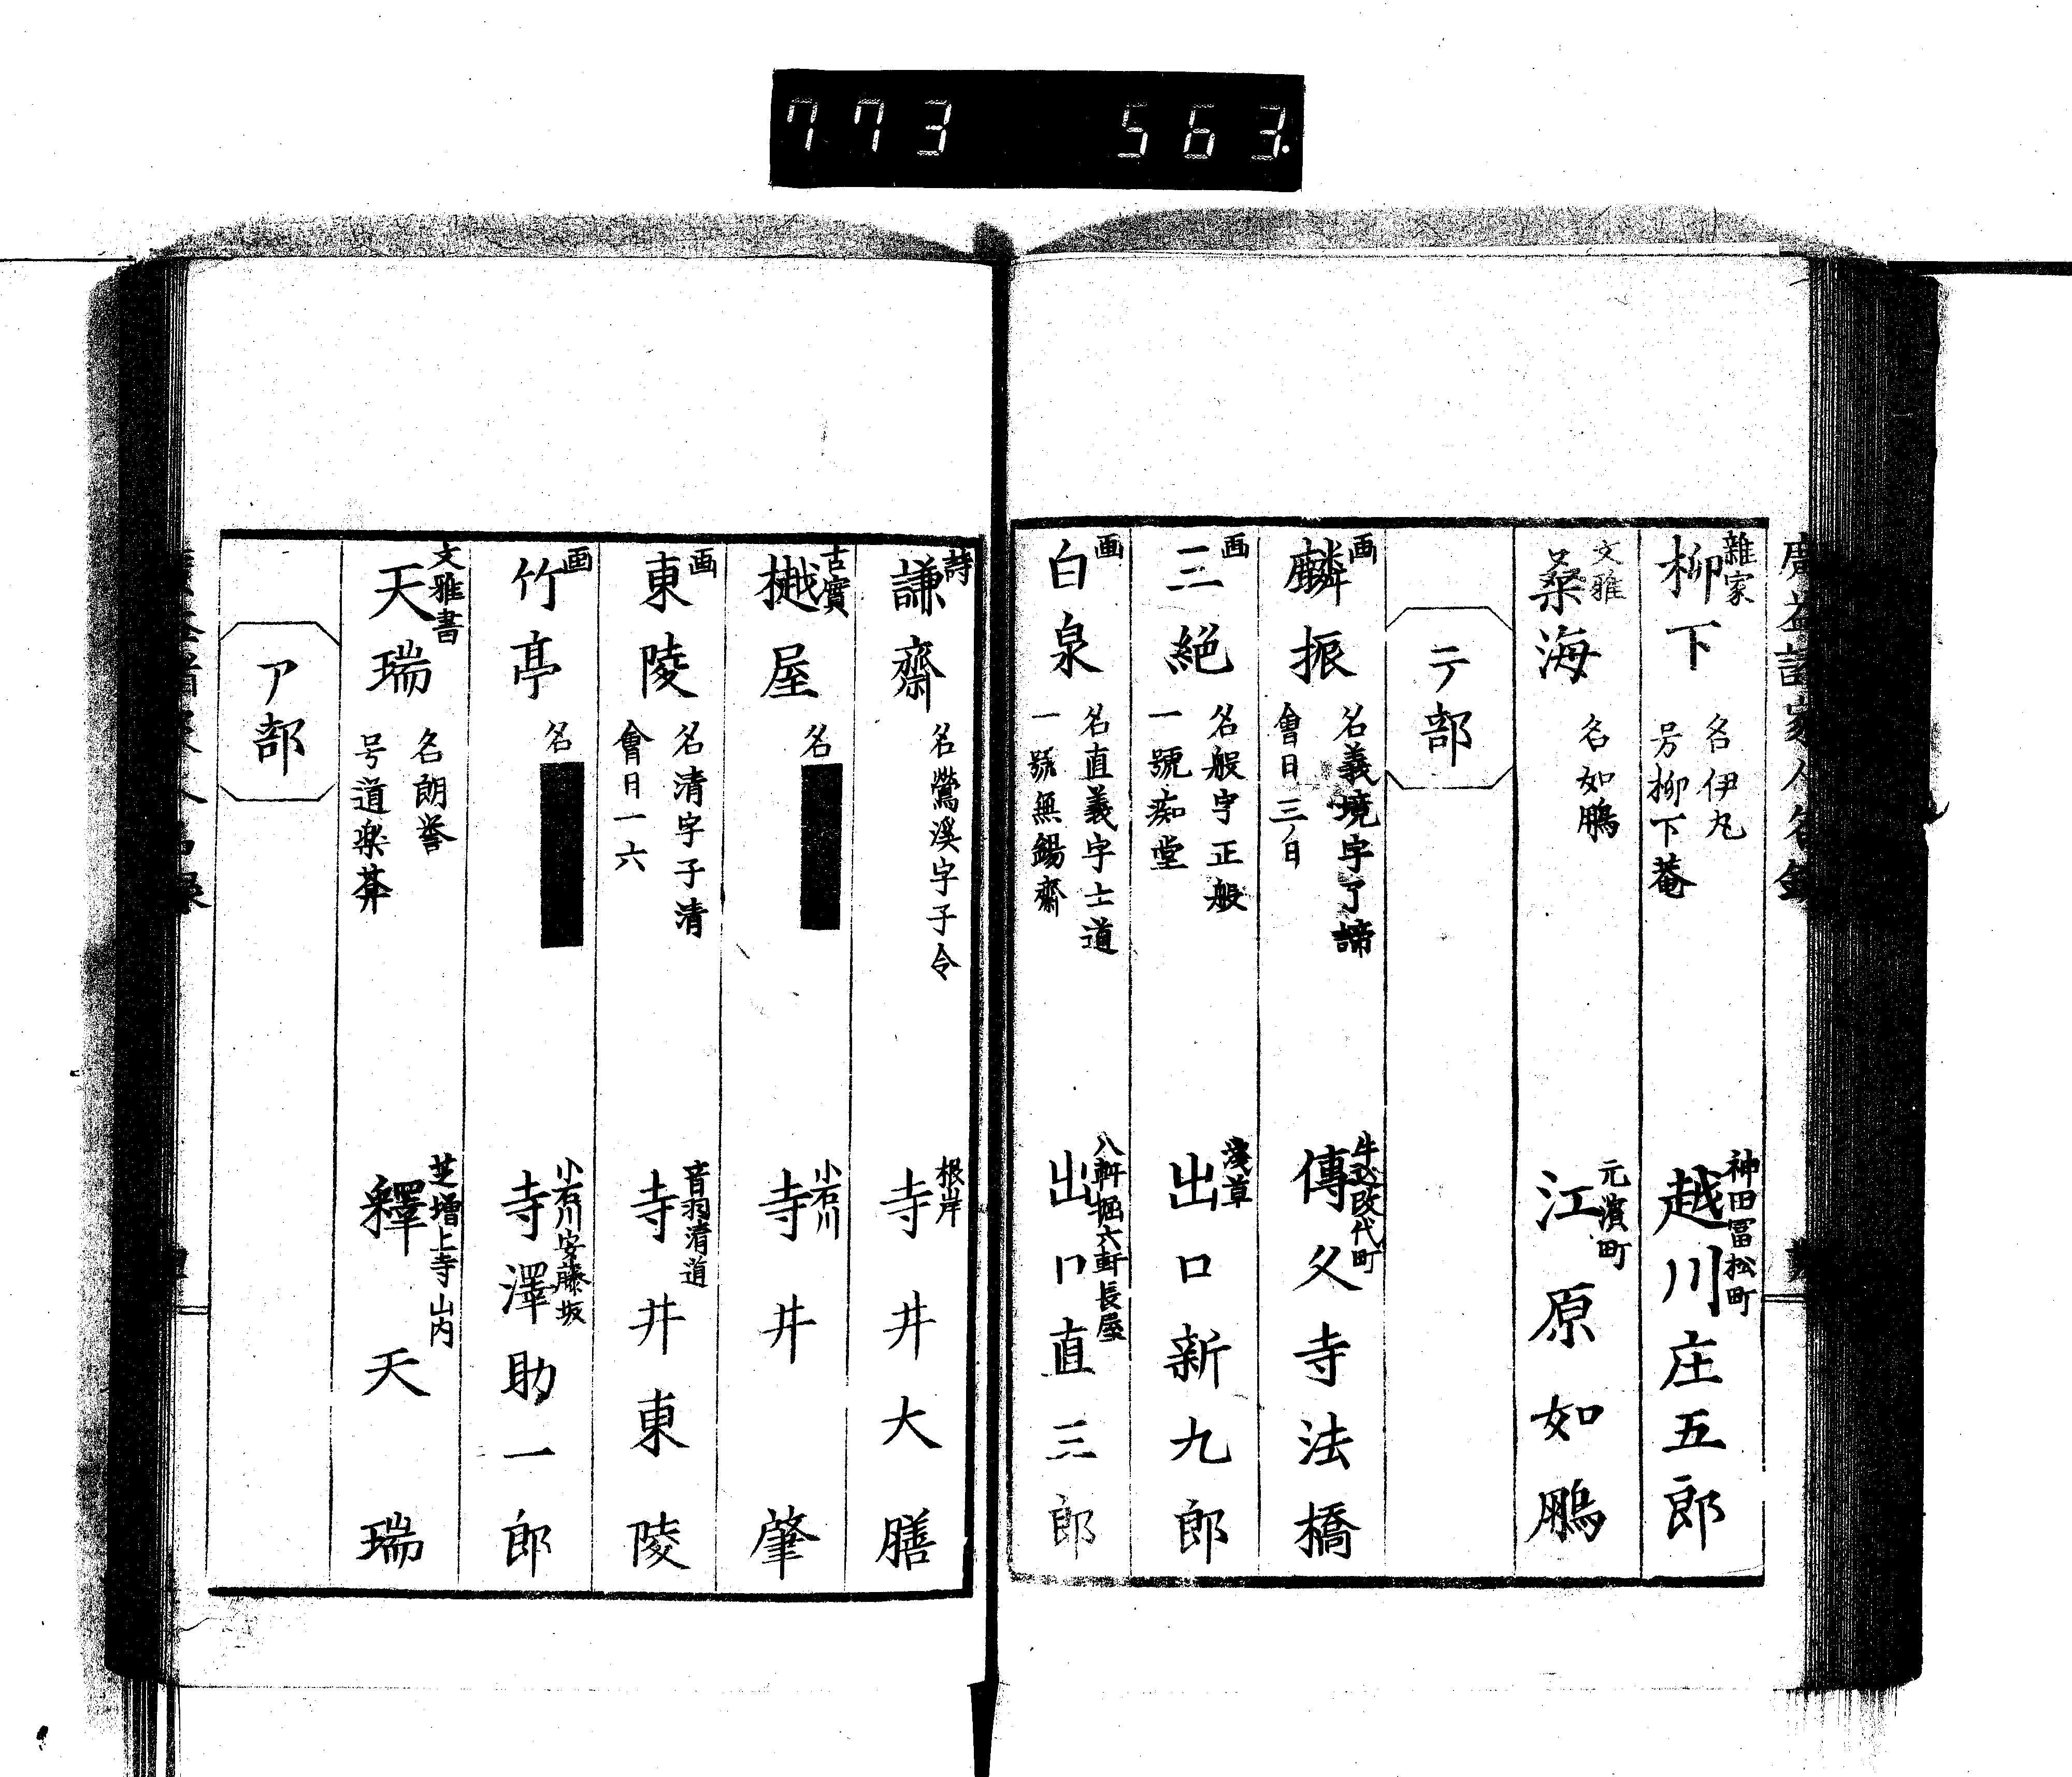 773 563.
廣益諸家人名録
雜家
柳下
名伊丸
号柳下菴
神田冨松町
越川庄五郎
文雅
桑海
名如鵬
元濱町
江原如鵬
テ部
画
麟振
名義境字了諦
會日三ノ日
牛込改代町
傳久寺法橋
画
三絕
名般字正般
一號痴堂
淺草
出口新九郎
画
白泉
名直義字士道
一號無錫齋
八軒堀六軒長屋
出口直三郎
詩
謙齋
名鶯溪字子令
根岸
寺井大膳
古實
樾屋
名
小石川
寺井肇
画
東陵
名清字子清
會日一六
音羽清道
寺井東陵
画
竹亭
名
小石川安藤坂
寺澤助一郎
文雅書
天瑞
名朗誉
号道楽菴
芝増上寺山内
釋天瑞
ア部